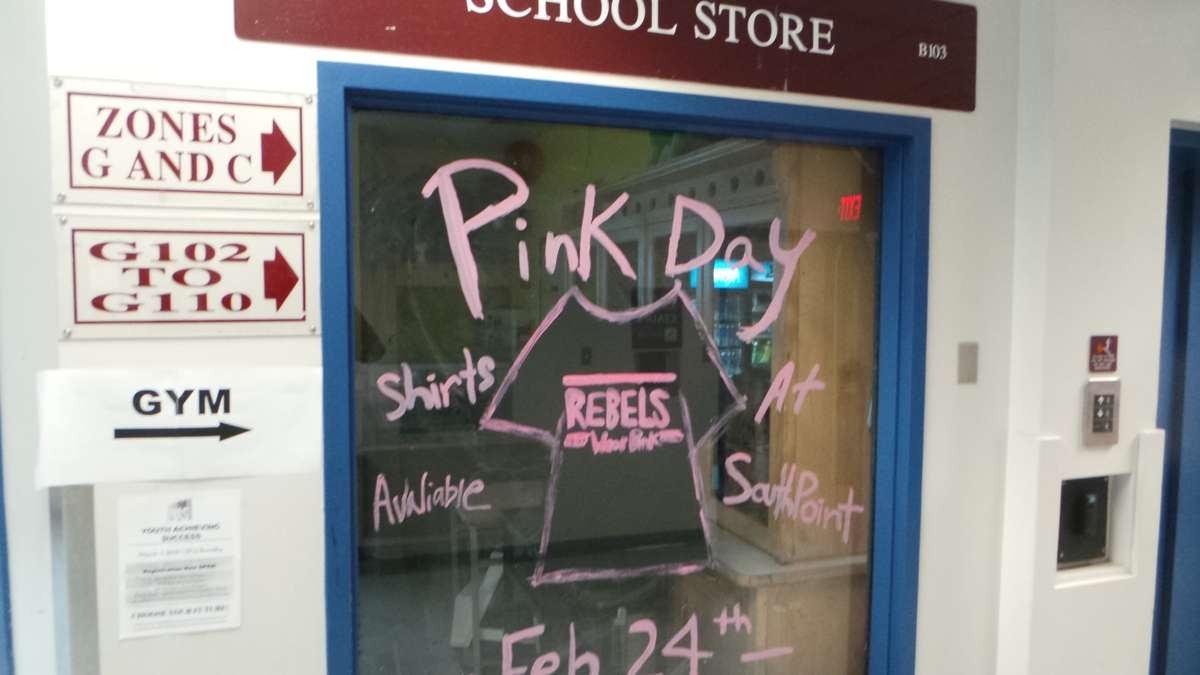 SCHOOL STORE
B103
ZONES
G AND C
G102
TO
G110
GYM
Pink Day
Shirts
Avaliable
REBELS
Wear Pink
At
SouthPoint
Feb 24th -
YOUTH ACHIEVING
SUCCESS